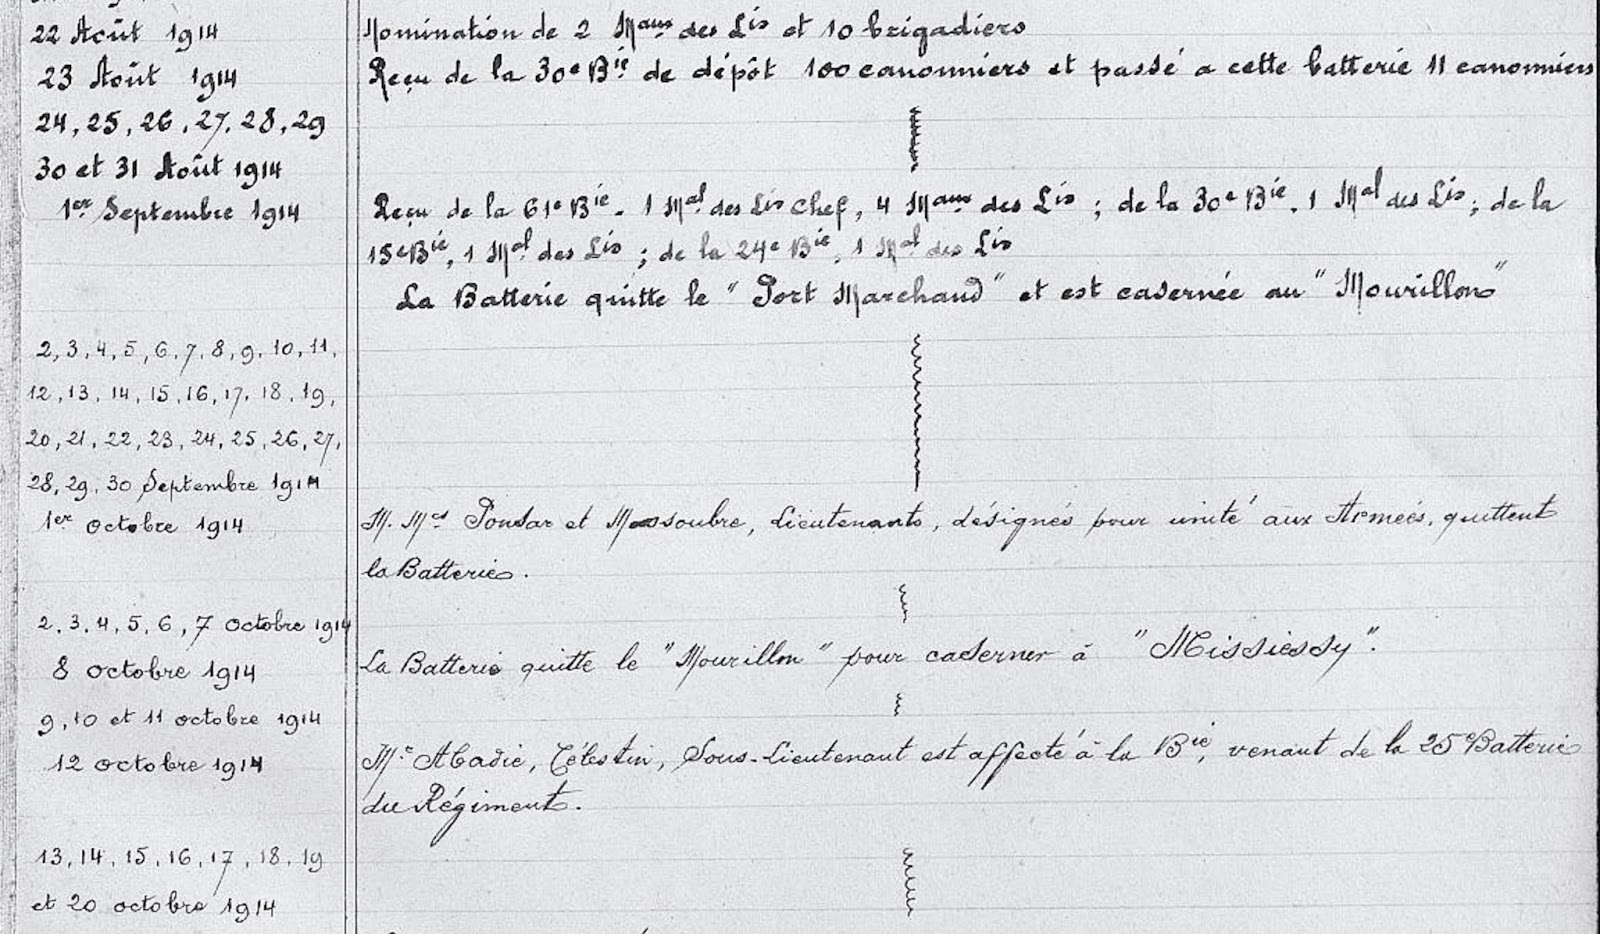 22 Août 1914 Nomination de 2 Maux des Lis et 10 brigadiers
23 Août 1914 Reçu de la 30e Bie de dépôt 100 canonniers et passé a cette batterie 11 canonniers
24, 25, 26, 27, 28, 29
30 et 31 Août 1914
1er Septembre 1914 Reçu de la 61e Bie. 1 Mal des Lis Chef, 4 Maux des Lis ; de la 30e Bie. 1 Mal des Lis ; de la
15e Bie, 1 Mal des Lis ; de la 24e Bie, 1 Mal des Lis
La Batterie quitte le "Port Marchand" et est casernée au "Mourillon"
2, 3, 4, 5, 6, 7, 8, 9, 10, 11,
12, 13, 14, 15, 16, 17, 18, 19,
20, 21, 22, 23, 24, 25, 26, 27,
28, 29, 30 Septembre 1914
1er octobre 1914 M. Mrs Ponsar et Massoubre, Lieutenants, désignés pour unité aux Armées, quittent
la Batterie.
2, 3, 4, 5, 6, 7 octobre 1914
8 octobre 1914 La Batterie quitte le "Mourillon" pour caserner à "Missiessy".
9, 10 et 11 octobre 1914
12 octobre 1914 Mr Abadie, Célestin, Sous-Lieutenant est affecté à la Bie, venant de la 25e Batterie
du Régiment.
13, 14, 15, 16, 17, 18, 19
et 20 octobre 1914